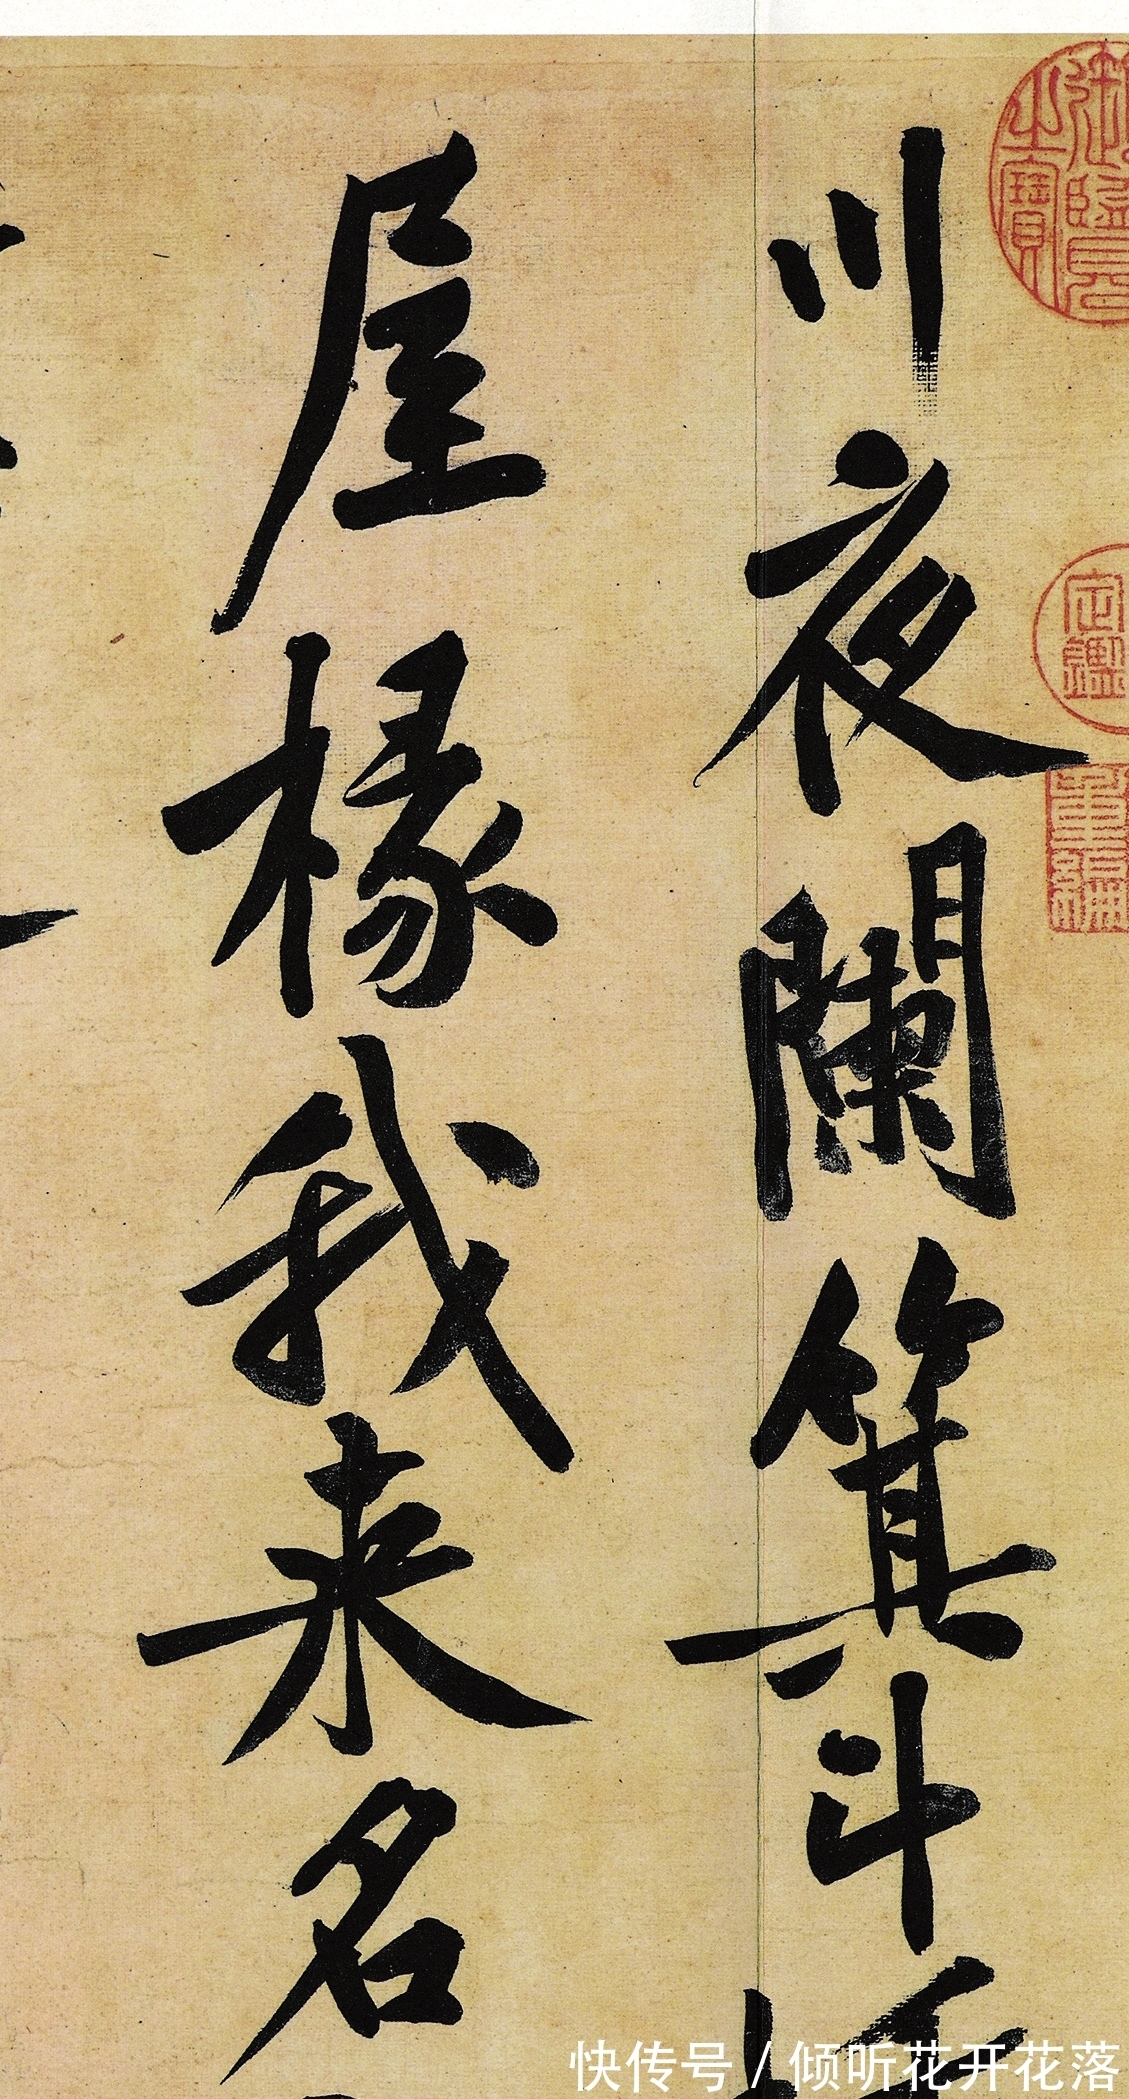 川夜闌箕斗
屋椽我来名
之寶
快传号 / 倾听花开花落